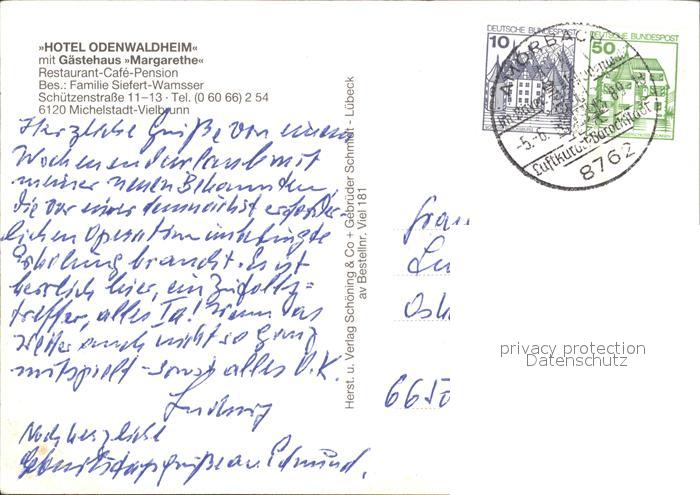 »HOTEL ODENWALDHEIM«
mit Gästehaus »Margarethe«
Restaurant-Café-Pension
Bes.: Familie Siefert-Wamsser
Schützenstraße 11–13 · Tel. (0 60 66) 2 54
6120 Michelstadt-Vielbrunn
Herzliche Grüße von einem
Wochenendurlaub mit
meiner neuen Bekannten,
die vor einer demnächst erforder-
lichen Operation unbedingte
Erholung braucht. Es ist
herrlich hier, ein Zufalls=
treffer, alles Ia! Wenn das
Wetter auch nicht so ganz
mitspielt – sonst alles O.K.
Ludwig
Noch herzliche
Geburtstagsgrüße an Edmund.
Herst. u. Verlag Schöning & Co + Gebrüder Schmidt - Lübeck
av Bestellnr. Viel 181
DEUTSCHE BUNDESPOST
10
DEUTSCHE BUNDESPOST
50
AMORBACH
-5.-6.
Luftkurort-Barockstadt
8762
Frau
Lu
Osk
6650
privacy protection
Datenschutz